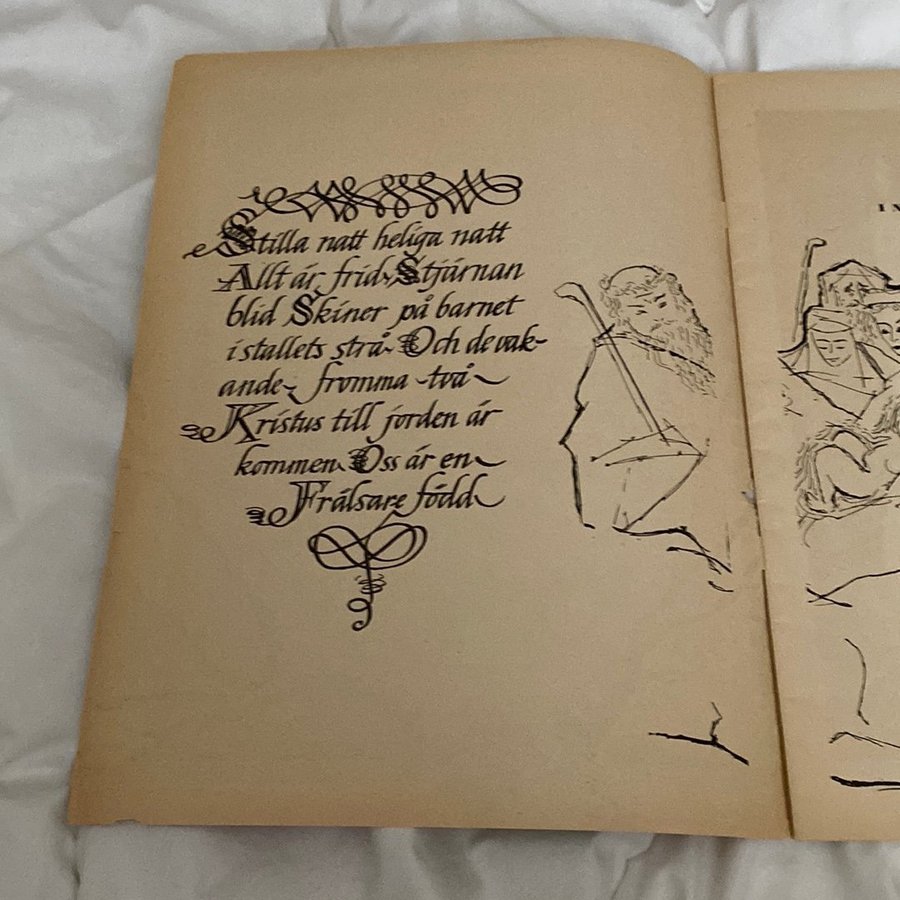 Stilla natt heliga natt
Allt är frid Stjärnan
blid Skiner på barnet
i stallets strå Och de vak-
ande fromma två
Kristus till jorden är
kommen Oss är en
Frälsare född